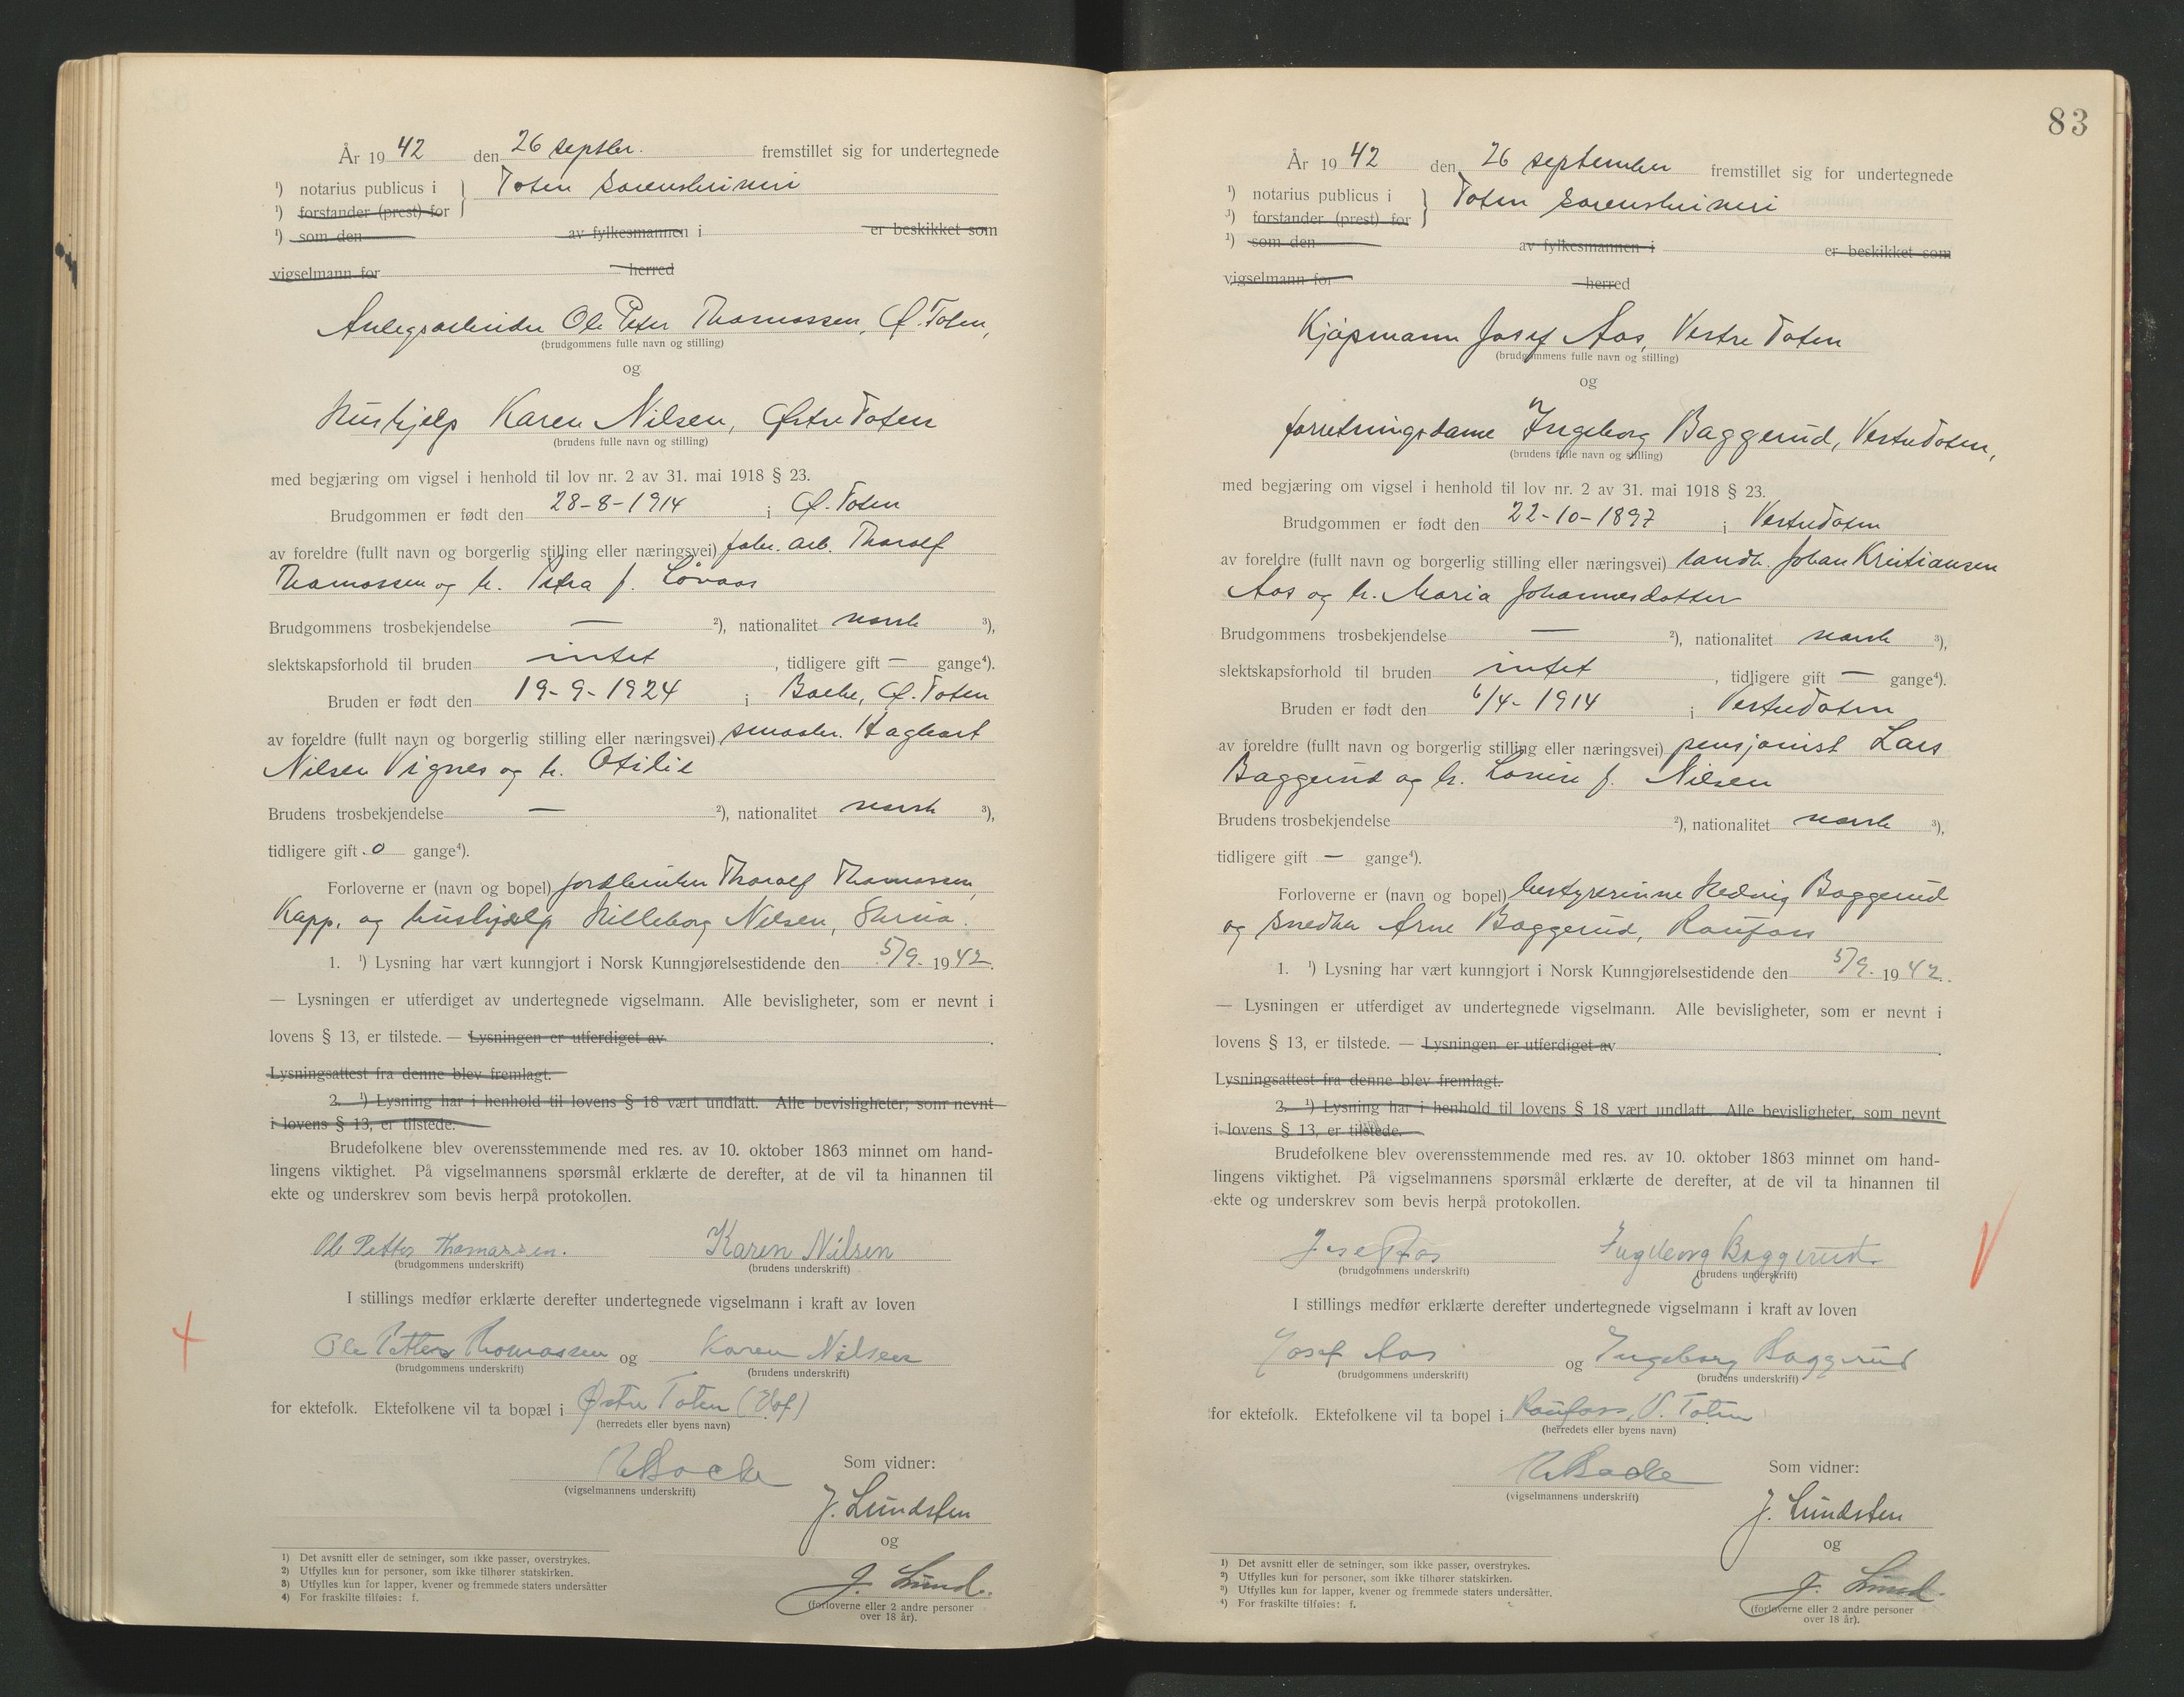 År 19 42 den 26 septbr. fremstillet sig for undertegnede
¹) notarius publicus i } Toten sorenskriveri
¹) forstander (prest) for
¹) som den av fylkesmannen i er beskikket som
vigselmann for herred
Anlegsarbeider Ole Peter Thomassen, Ø. Toten,
(brudgommens fulle navn og stilling)
og
Hushjelp Karen Nilsen, Østre Toten
(brudens fulle navn og stilling)
med begjæring om vigsel i henhold til lov nr. 2 av 31. mai 1918 § 23.
Brudgommen er født den 28-8-1914 i Ø. Toten
av foreldre (fullt navn og borgerlig stilling eller næringsvei) fabr. arb. Thoralf
Thomassen og h. Petra f. Løvaas
Brudgommens trosbekjendelse — ²), nationalitet norsk ³),
slektskapsforhold til bruden intet , tidligere gift — gange⁴).
Bruden er født den 19-9-1924 i Balke, Ø. Toten
av foreldre (fullt navn og borgerlig stilling eller næringsvei) smaabr. Hagbart
Nilsen Vignes og h. Otilie
Brudens trosbekjendelse — ²), nationalitet norsk ³),
tidligere gift 0 gange⁴).
Forloverne er (navn og bopel) jordbruker Thoralf Thomassen,
Kapp, og hushjelp Hilleborg Nilsen, Skreia.
1. ¹) Lysning har vært kunngjort i Norsk Kunngjørelsestidende den 5/9. 1942.
— Lysningen er utferdiget av undertegnede vigselmann. Alle bevisligheter, som er nevnt i
lovens § 13, er tilstede. — Lysningen er utferdiget av .
Lysningsattest fra denne blev fremlagt.
2. ¹) Lysning har i henhold til lovens § 18 vært undlatt. Alle bevisligheter, som nevnt
i lovens § 13, er tilstede.
Brudefolkene blev overensstemmende med res. av 10. oktober 1863 minnet om hand-
lingens viktighet. På vigselmannens spørsmål erklærte de derefter, at de vil ta hinannen til
ekte og underskrev som bevis herpå protokollen.
Ole Petter Thomassen. Karen Nilsen
(brudgommens underskrift) (brudens underskrift)
I stillings medfør erklærte derefter undertegnede vigselmann i kraft av loven
Ole Petter Thomassen og Karen Nilsen
(brudgommens underskrift) (brudens underskrift)
for ektefolk. Ektefolkene vil ta bopæl i Østre Toten (Hof)
(herredets eller byens navn)
Backe
(vigselmannens underskrift)
Som vidner:
J. Lundsten
og
J. Lund.
(forloverne eller 2 andre personer
over 18 år).
1) Det avsnitt eller de setninger, som ikke passer, overstrykes.
2) Utfylles kun for personer, som ikke tilhører statskirken.
3) Utfylles kun for lapper, kvener og fremmede staters undersåtter
4) For fraskilte tilføies: f.
83
År 19 42 den 26 september fremstillet sig for undertegnede
¹) notarius publicus i } Toten sorenskriveri
¹) forstander (prest) for
¹) som den av fylkesmannen i er beskikket som
vigselmann for herred
Kjøpmann Josef Aos, Vestre Toten
(brudgommens fulle navn og stilling)
og
forretningsdame Ingeborg Baggerud, Vestre Toten,
(brudens fulle navn og stilling)
med begjæring om vigsel i henhold til lov nr. 2 av 31. mai 1918 § 23.
Brudgommen er født den 22-10-1897 i Vestre Toten
av foreldre (fullt navn og borgerlig stilling eller næringsvei) landh. Johan Kristiansen
Aos og h. Maria Johannesdatter
Brudgommens trosbekjendelse — ²), nationalitet norsk ³),
slektskapsforhold til bruden intet , tidligere gift — gange⁴).
Bruden er født den 6/4-1914 i Vestre Toten
av foreldre (fullt navn og borgerlig stilling eller næringsvei) pensjonist Lars
Baggerud og h. Lovise f. Nilsen
Brudens trosbekjendelse ²), nationalitet norsk ³),
tidligere gift — gange⁴).
Forloverne er (navn og bopel) bestyrerinne Hedvig Baggerud
og snedker Arne Baggerud, Raufoss
1. ¹) Lysning har vært kunngjort i Norsk Kunngjørelsestidende den 5/9. 1942.
— Lysningen er utferdiget av undertegnede vigselmann. Alle bevisligheter, som er nevnt i
lovens § 13, er tilstede. — Lysningen er utferdiget av .
Lysningsattest fra denne blev fremlagt.
2. ¹) Lysning har i henhold til lovens § 18 vært undlatt. Alle bevisligheter, som nevnt
i lovens § 13, er tilstede.
Brudefolkene blev overensstemmende med res. av 10. oktober 1863 minnet om hand-
lingens viktighet. På vigselmannens spørsmål erklærte de derefter, at de vil ta hinannen til
ekte og underskrev som bevis herpå protokollen.
Josef Aos Ingeborg Baggerud.
(brudgommens underskrift) (brudens underskrift)
I stillings medfør erklærte derefter undertegnede vigselmann i kraft av loven
Josef Aos og Ingeborg Baggerud
(brudgommens underskrift) (brudens underskrift)
for ektefolk. Ektefolkene vil ta bopel i Raufoss, V. Toten
(herredets eller byens navn)
Backe
(vigselmannens underskrift)
Som vidner:
J. Lundsten
og
J. Lund.
(forloverne eller 2 andre personer
over 18 år).
1) Det avsnitt eller de setninger, som ikke passer, overstrykes.
2) Utfylles kun for personer, som ikke tilhører statskirken.
3) Utfylles kun for lapper, kvener og fremmede staters undersåtter.
4) For fraskilte tilføies: f.